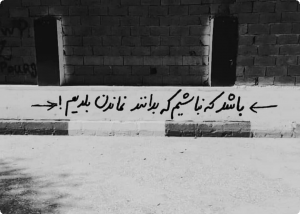 باشد که نباشیم که بدانند نماندن بلدیم !